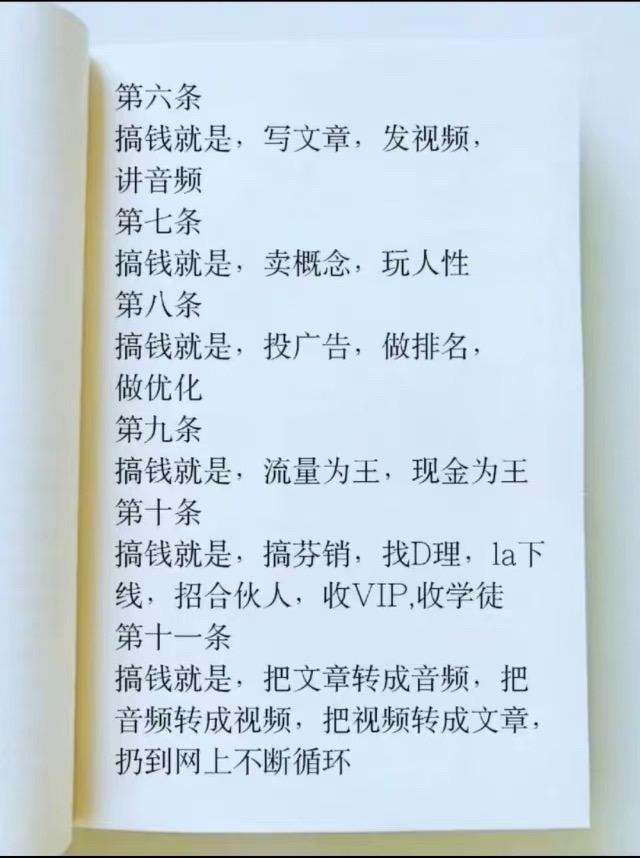 第六条
搞钱就是，写文章，发视频，
讲音频
第七条
搞钱就是，卖概念，玩人性
第八条
搞钱就是，投广告，做排名，
做优化
第九条
搞钱就是，流量为王，现金为王
第十条
搞钱就是，搞芬销，找D理，la下
线，招合伙人，收VIP,收学徒
第十一条
搞钱就是，把文章转成音频，把
音频转成视频，把视频转成文章，
扔到网上不断循环